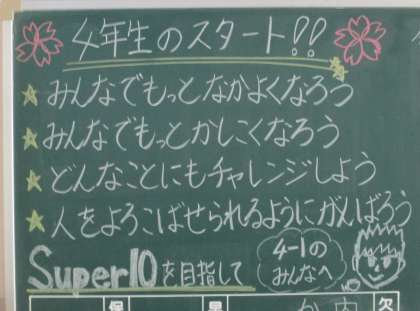 4年生のスタート!!
みんなでもっとなかよくなろう
みんなでもっとかしこくなろう
どんなことにもチャレンジしよう
人をよろこばせられるようにがんばろう
Super10を目指して
4-1の
みんなへ